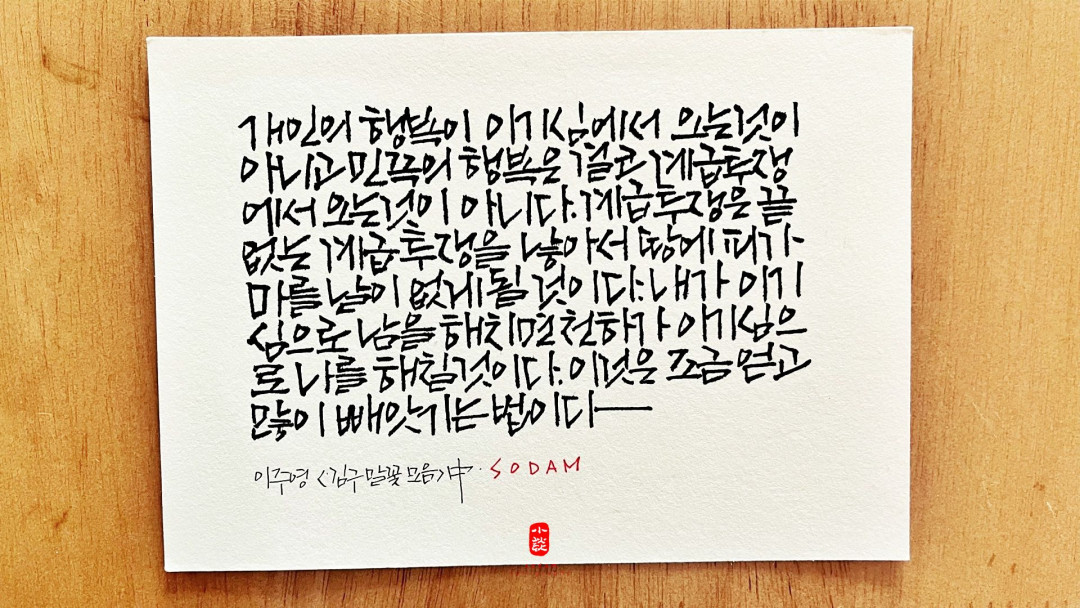 개인의 행복이 이기심에서 오는것이
아니고 민족의 행복은 결코 계급투쟁
에서 오는것이 아니다. 계급투쟁은 끝
없는 계급투쟁을 낳아서 땅에 피가
마를날이 없게될 것이다. 내가 이기
심으로 남을 해치면 천하가 이기심으
로 나를 해칠것이다. 이것은 조금 얻고
많이 빼앗기는 법이다—
이주영 <김구 말꽃 모음> 中. SODAM
小